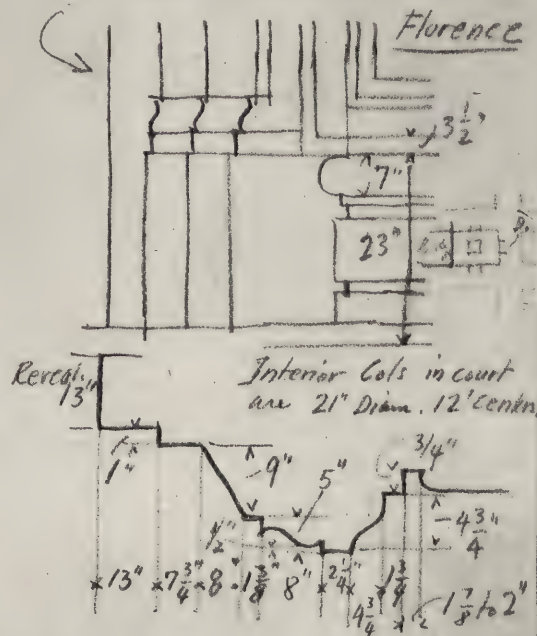 Florence
3 1/2"
7"
23"
Reveal
13"
Interior Cols in court
are 21" Diam. 12' Centers
1"
9"
5"
1/2"
3/4"
4 3/4"
13" 7 3/4" 8" 1 3/8" 8" 2 1/4" 4 3/4 1 3/4
1 7/8 to 2"